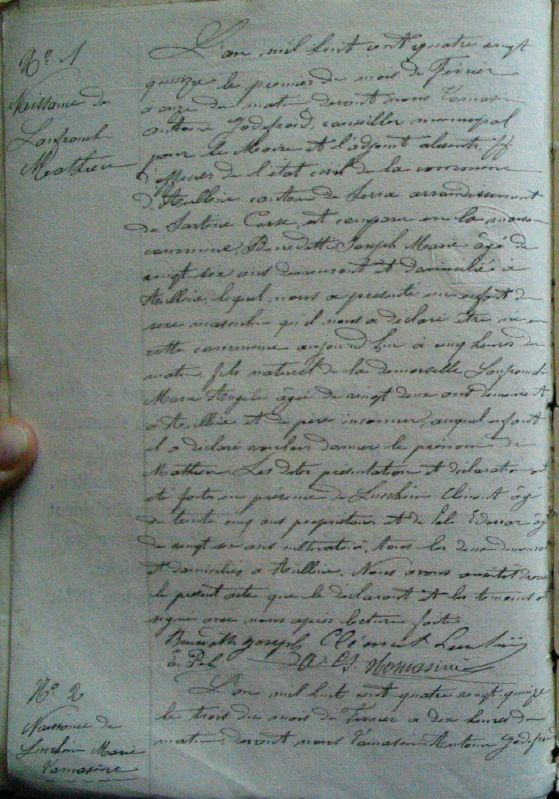 N° 1
Naissance de
Lanfranchi
Mathieu
L'an mil huit cent quatre vingt
quinze le premier du mois de Février
à onze du matin devant nous Tomasini
Antoine Godefroid, conseiller municipal
pour le Maire et l'adjoint absents, ff
d'officier de l'état civil de la commune
d'Aullène canton de Serra arrondissement
de Sartène Corse, est comparu en la maison
commune, Benedetti Joseph Marie âgé de
vingt six ans demeurant et domicilié à
Aullène, lequel nous a présenté un enfant du
sexe masculin qu'il nous a déclaré être né en
cette commune aujourd'hui à cinq heures du
matin, fils naturel de la demoiselle Lanfranchi
Marie Angele âgée de vingt deux ans demeurant
à Aullène et de père inconnu, auquel enfant
il a déclaré vouloir donner le prénom de
Mathieu Les dites présentation et déclaration
été faites en présence de Lucchini Clément âgé
de trente cinq ans propriétaire et de Poli Edouard âgé
de vingt six ans cultivateur, tous les deux demeurant
et domiciliés à Aullène. Nous avons aussitôt dressé
le présent acte que le déclarant et les témoins ont
signé avec nous après lecture faite
Benedetti Joseph Clément Lucchini
E Poli A. G. Tomasini
N° 2
Naissance de
Lucchini Marie
Tomasine
L'an mil huit cent quatre vingt-quinze
le trois du mois de Février à dix heures du
matin, devant nous Tomasini Antoine Godefroid